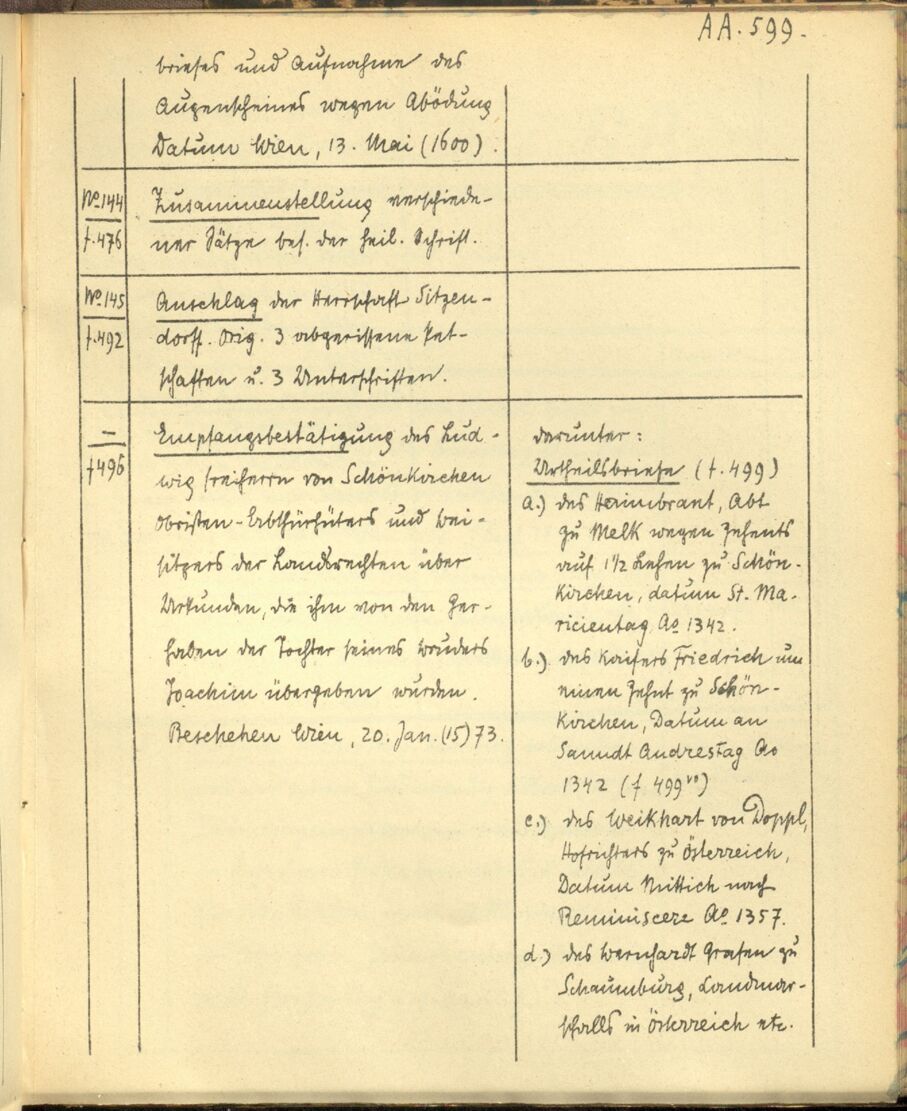 AA. 599.
briefes und Aufnahme des
Augenscheines wegen Abödung
Datum Wien, 13. Mai (1600).
No 144
f. 476
Zusammenstellung verschiede-
ner Sätze bes. der heil. Schrift.
No 145
f. 492
Anschlag der Herrschaft Sitzen-
dorff. Orig. 3 abgerissene Pet-
schaften u. 3 Unterschriften.
—
f 496
Empfangsbestätigung des Lud-
wig Freiherrn von Schönkirchen
obristen-Erbthürhüters und Bei-
sitzers der Landsrechten über
Urkunden, die ihm von den Ger-
haben der Tochter seines Bruders
Joachim übergeben wurden.
Beschehen Wien, 20. Jan. (15)73.
darunter:
Urtheilsbriefe (f. 499)
a.) des Heimbrant, Abt
zu Melk wegen Zehents
auf 1½ Lehen zu Schön-
kirchen, datum St. Ma-
ricientag Ao 1342.
b.) des Kaisers Friedrich um
einen Zehnt zu Schön-
kirchen, Datum an
Sanndt Andrestag Ao
1342 (f 499vo)
c.) des Weikhart von Doppl,
Hofrichters zu Österreich,
Datum Mittich nach
Reminiscere Ao 1357.
d.) des Wernhardt Grafen zu
Schaumburg, Landmar-
schalls in Österreich etc.